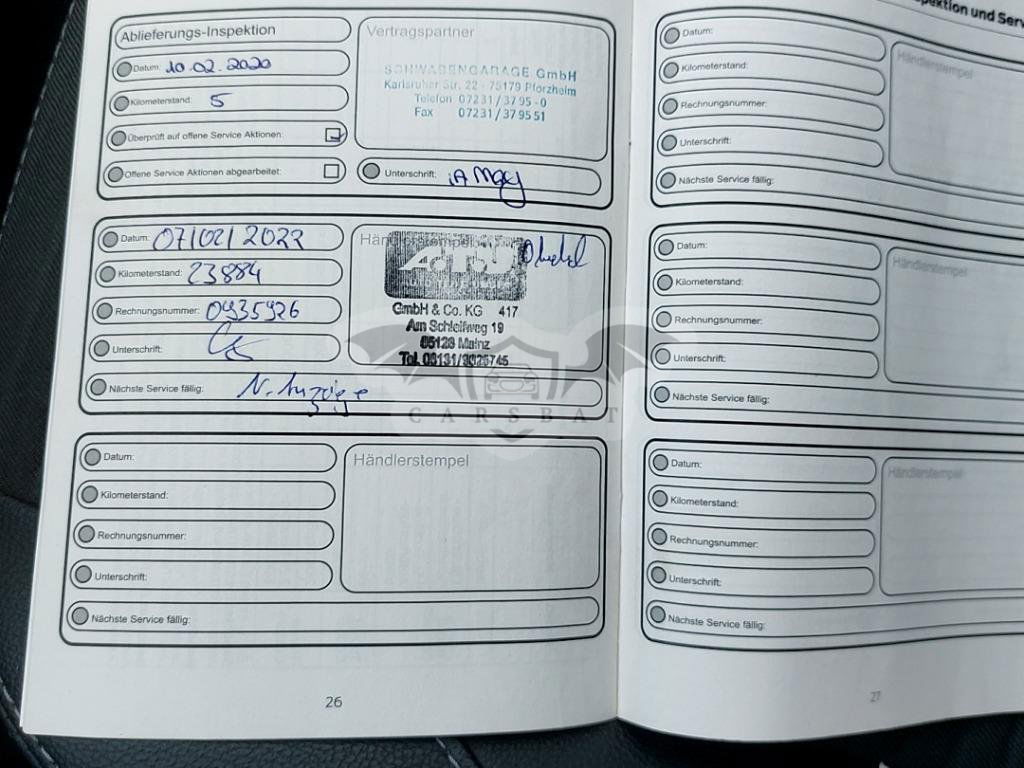 Ablieferungs-Inspektion
Datum: 10.02.2020
Kilometerstand: 5
Überprüft auf offene Service Aktionen:
Offene Service Aktionen abgearbeitet:
Vertragspartner
SCHWABENGARAGE GmbH
Karlsruher Str. 22 - 75179 Pforzheim
Telefon 07231/3795-0
Fax 07231/379551
Unterschrift:
Datum: 07/02/2022
Kilometerstand: 23884
Rechnungsnummer: 0935926
Unterschrift:
Nächste Service fällig: N. Anzeige
Händlerstempel
A.T.U
GmbH & Co. KG 417
Am Schleifweg 19
55128 Mainz
Tel.
CARSBAT
Datum:
Kilometerstand:
Rechnungsnummer:
Unterschrift:
Nächste Service fällig:
Händlerstempel
26
Inspektion und Serv
Datum:
Kilometerstand:
Rechnungsnummer:
Unterschrift:
Nächste Service fällig:
Händlerstempel
Datum:
Kilometerstand:
Rechnungsnummer:
Unterschrift:
Nächste Service fällig:
Händlerstempel
Datum:
Kilometerstand:
Rechnungsnummer:
Unterschrift:
Nächste Service fällig:
Händlerstempel
27